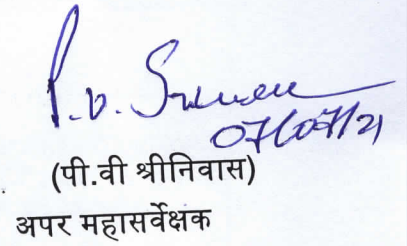 P.V. Srinivas
07/07/21
(पी.वी श्रीनिवास)
अपर महासर्वेक्षक